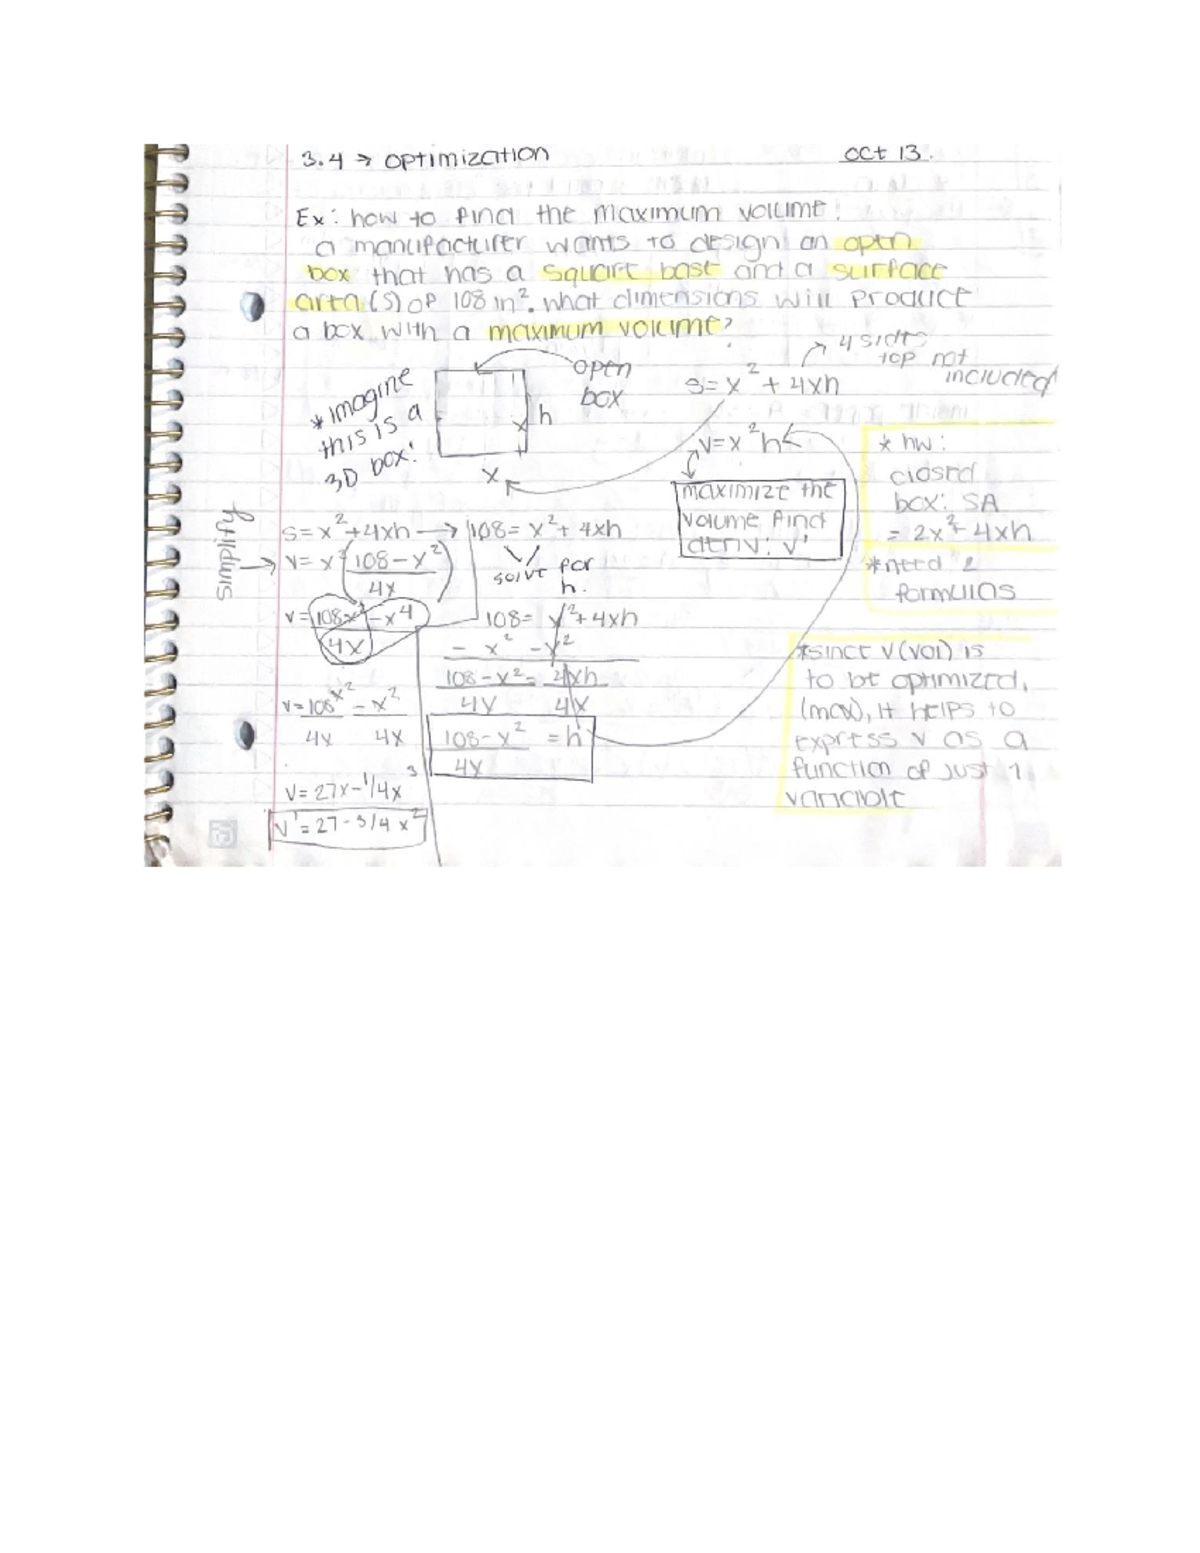 3.4 → optimization
oct 13.
Ex: how to find the maximum volume:
a manufacturer wants to design an open
box that has a square base and a surface
area (S) of 108 in². what dimensions will produce
a box with a maximum volume?
* imagine
this is a
3D box!
open
box
h
x
x
S = x² + 4xh
4 sides
top not
included
V = x²h
maximize the
volume find
deriv: V'
* hw:
closed
box: SA
= 2x² + 4xh
* need 2
formulas
simplify
S = x² + 4xh → 108 = x² + 4xh
solve for
h.
V = x² (108 - x²)
4x
V = 108x² - x⁴
4x
V = 108x² - x²
4x 4x
V = 27x - 1/4x³
V' = 27 - 3/4 x²
108 = x² + 4xh
- x² - x²
108 - x² = 4xh
4x 4x
108 - x² = h
4x
* since V (vol) is
to be optimized,
(max), it helps to
express V as a
function of just 1
variable